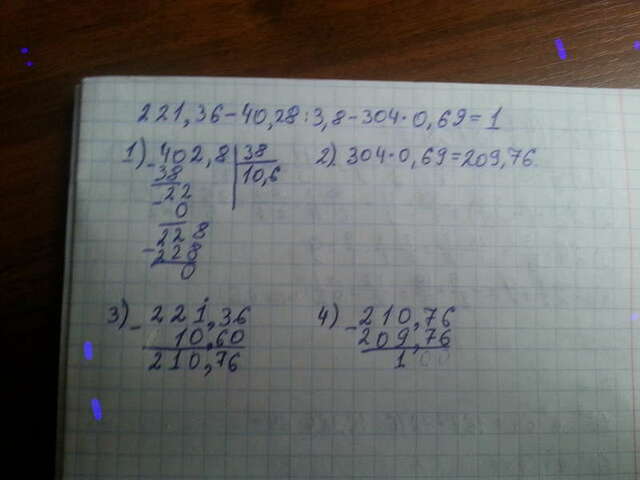 221,36-40,28:3,8-304·0,69=1
1) -402,8 | 38
38 | 10,6
-22
0
-228
228
0
2) 304·0,69=209,76
3) -221,36
10,60
210,76
4) -210,76
209,76
1,00